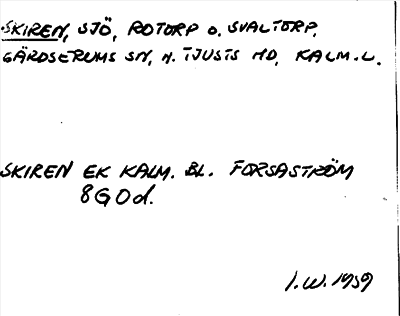 SKIREN, SJÖ, ROTORP O. SVALTORP,
GÄRDSERUMS SN, N. TJUSTS HD, KALM.L.
SKIREN EK KALM. BL. FORSASTRÖM
8G0d.
I.W. 1959